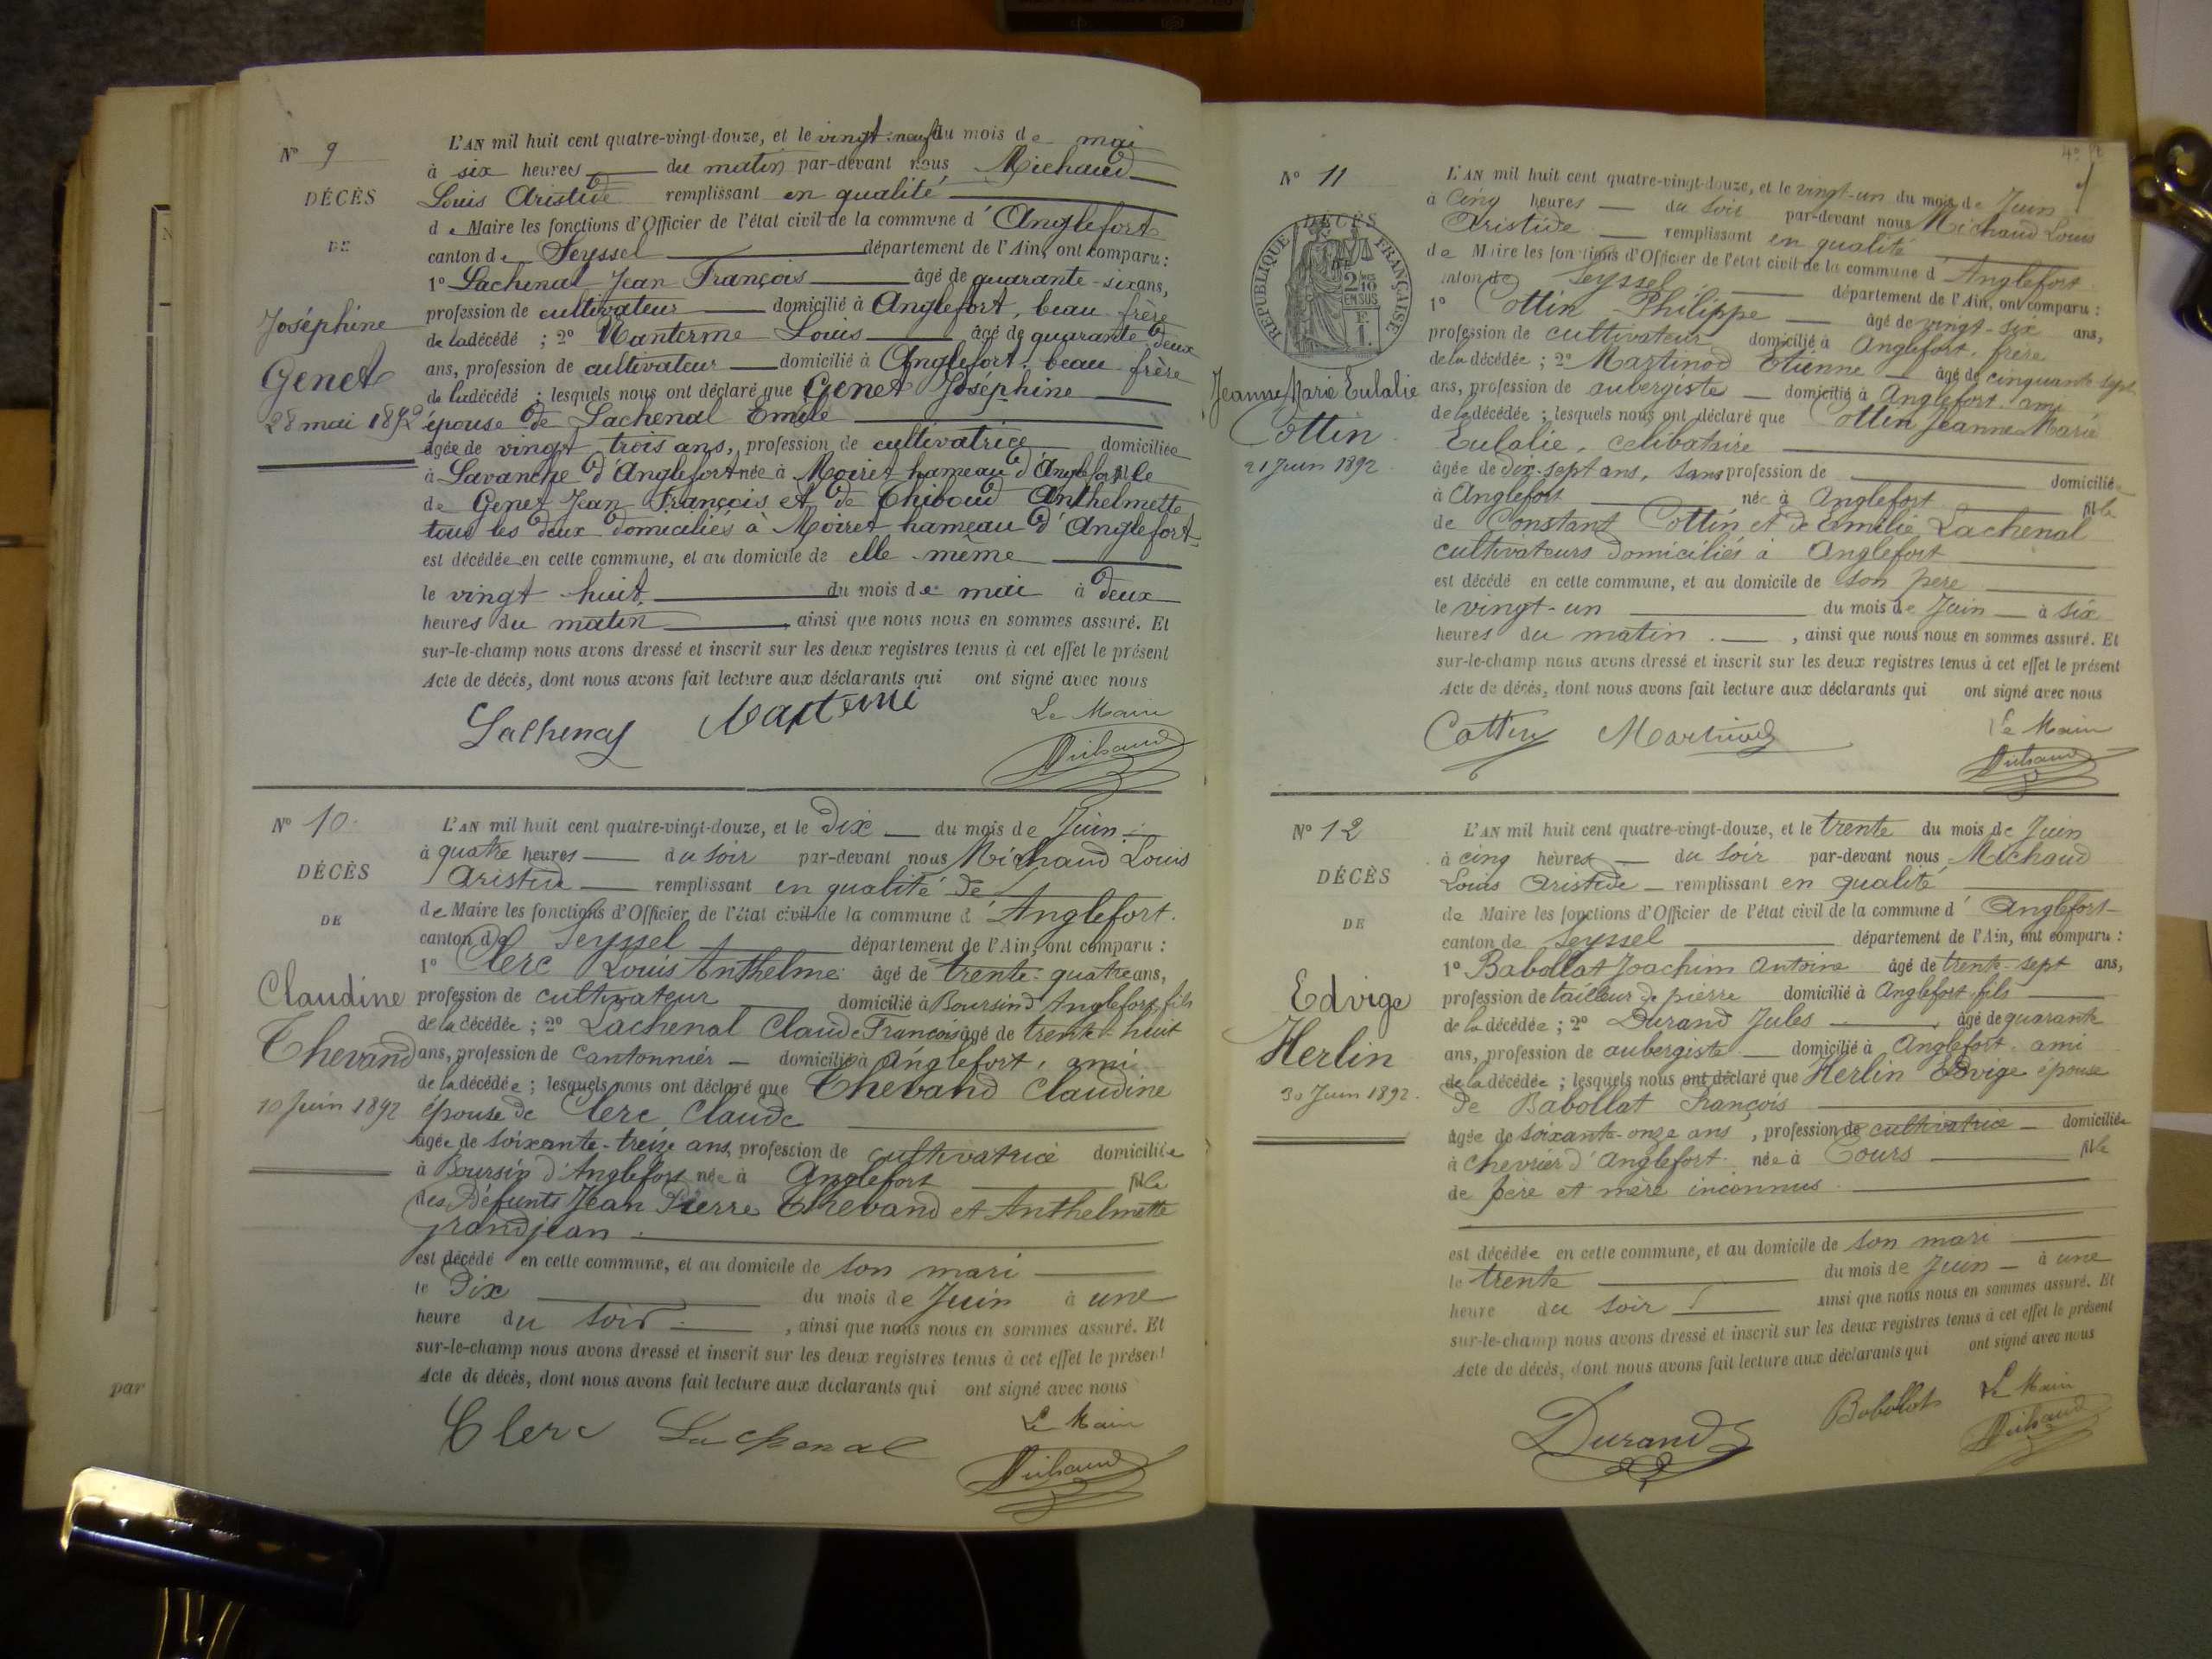 N° 9
DÉCÈS
DE
Joséphine
Genet
28 mai 1892
L'AN mil huit cent quatre-vingt-douze, et le vingt-neuf du mois de mai
à six heures du matin par-devant nous Michaud
Louis Aristide remplissant en qualité
de Maire les fonctions d'Officier de l'état civil de la commune d'Anglefort
canton de Seyssel département de l'Ain, ont comparu :
1° Lachenal Jean François âgé de quarante-six ans,
profession de cultivateur domicilié à Anglefort, beau-frère
de la décédé ; 2° Manterme Louis âgé de quarante deux
ans, profession de cultivateur domicilié à Anglefort, beau-frère
de la décédé ; lesquels nous ont déclaré que Genet Joséphine
épouse de Lachenal Emile
âgée de vingt-trois ans, profession de cultivatrice domiciliée
à Lavanche d'Anglefort née à Moiret hameau d'Anglefort fille
de Genet Jean François et de Thiboud Anthelmette
tous les deux domiciliés à Moiret hameau d'Anglefort
est décédée en cette commune, et au domicile de elle-même
le vingt-huit du mois de mai à deux
heures du matin ainsi que nous nous en sommes assuré. Et
sur-le-champ nous avons dressé et inscrit sur les deux registres tenus à cet effet le présent
Acte de décès, dont nous avons fait lecture aux déclarants qui ont signé avec nous
Lachenal Manterme Le Maire
Michaud
N° 10
DÉCÈS
DE
Claudine
Thevand
10 Juin 1892
L'AN mil huit cent quatre-vingt-douze, et le Dix du mois de Juin
à quatre heures du soir par-devant nous Michaud Louis
Aristide remplissant en qualité de
de Maire les fonctions d'Officier de l'état civil de la commune d'Anglefort
canton de Seyssel département de l'Ain, ont comparu :
1° Clerc Louis Anthelme âgé de trente-quatre ans,
profession de cultivateur domicilié à Boursin d'Anglefort, fils
de la décédée ; 2° Lachenal Claude François âgé de trente-huit
ans, profession de Cantonnier domicilié à Anglefort, ami
de la décédée ; lesquels nous ont déclaré que Thevand Claudine
épouse de Clerc Claude
âgée de soixante-treize ans, profession de cultivatrice domiciliée
à Boursin d'Anglefort née à Anglefort fille
des Défunts Jean Pierre Thevand et Anthelmette
grandjean
est décédé en cette commune, et au domicile de son mari
le Dix du mois de Juin à une
heure du soir , ainsi que nous nous en sommes assuré. Et
sur-le-champ nous avons dressé et inscrit sur les deux registres tenus à cet effet le présent
Acte de décès, dont nous avons fait lecture aux déclarants qui ont signé avec nous
Clerc Lachenal Le Maire
Michaud
par
N° 11
DÉCÈS
DE
RÉPUBLIQUE FRANÇAISE
2/10
EN SUS
F.
1.
Jeanne Marie Eulalie
Cottin
21 Juin 1892
L'AN mil huit cent quatre-vingt-douze, et le vingt-un du mois de Juin
à Cinq heures du soir par-devant nous Michaud Louis
Aristide remplissant en qualité
de Maire les fonctions d'Officier de l'état civil de la commune d'Anglefort
canton de Seyssel département de l'Ain, ont comparu :
1° Cottin Philippe âgé de vingt-six ans,
profession de cultivateur domicilié à Anglefort, frère
de la décédée ; 2° Martinod Etienne âgé de cinquante-sept
ans, profession de aubergiste domicilié à Anglefort, ami
de la décédée ; lesquels nous ont déclaré que Cottin Jeanne Marie
Eulalie, célibataire
âgée de dix-sept ans, sans profession de domiciliée
à Anglefort née à Anglefort fille
de Constant Cottin et de Emilie Lachenal
cultivateurs domiciliés à Anglefort
est décédé en cette commune, et au domicile de son père
le vingt-un du mois de Juin à six
heures du matin , ainsi que nous nous en sommes assuré. Et
sur-le-champ nous avons dressé et inscrit sur les deux registres tenus à cet effet le présent
Acte de décès, dont nous avons fait lecture aux déclarants qui ont signé avec nous
Cottin Martinod Le Maire
Michaud
N° 12
DÉCÈS
DE
Edvige
Herlin
30 Juin 1892.
L'AN mil huit cent quatre-vingt-douze, et le trente du mois de Juin
à cinq heures du soir par-devant nous Michaud
Louis Aristide remplissant en qualité
de Maire les fonctions d'Officier de l'état civil de la commune d'Anglefort
canton de Seyssel département de l'Ain, ont comparu :
1° Babollat Joachim Antoine âgé de trente-sept ans,
profession de tailleur de pierre domicilié à Anglefort, fils
de la décédée ; 2° Durand Jules âgé de quarante
ans, profession de aubergiste domicilié à Anglefort, ami
de la décédée ; lesquels nous ont déclaré que Herlin Edvige épouse
de Babollat François
âgée de soixante-onze ans , profession de cultivatrice domiciliée
à Chevrier d'Anglefort née à Tours fille
de père et mère inconnus
est décédée en cette commune, et au domicile de son mari
le trente du mois de Juin à une
heure du soir ainsi que nous nous en sommes assuré. Et
sur-le-champ nous avons dressé et inscrit sur les deux registres tenus à cet effet le présent
Acte de décès, dont nous avons fait lecture aux déclarants qui ont signé avec nous
Durand Babollat Le Maire
Michaud